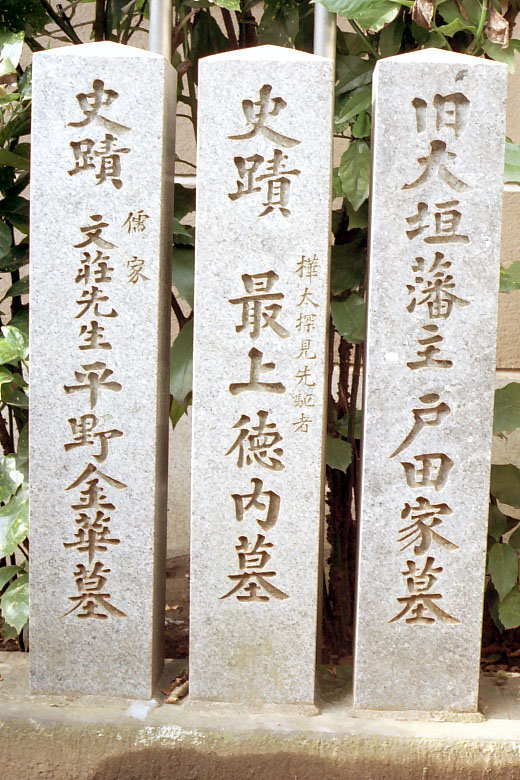 旧大垣藩主戸田家墓
史蹟
樺太探見先駈者
最上徳内墓
史蹟
儒家
文荘先生平野金華墓